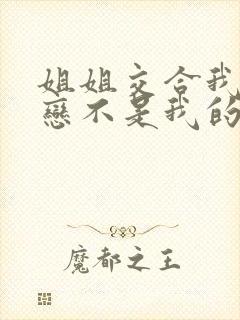 姐姐交合我
戀不是我的
魔都之王